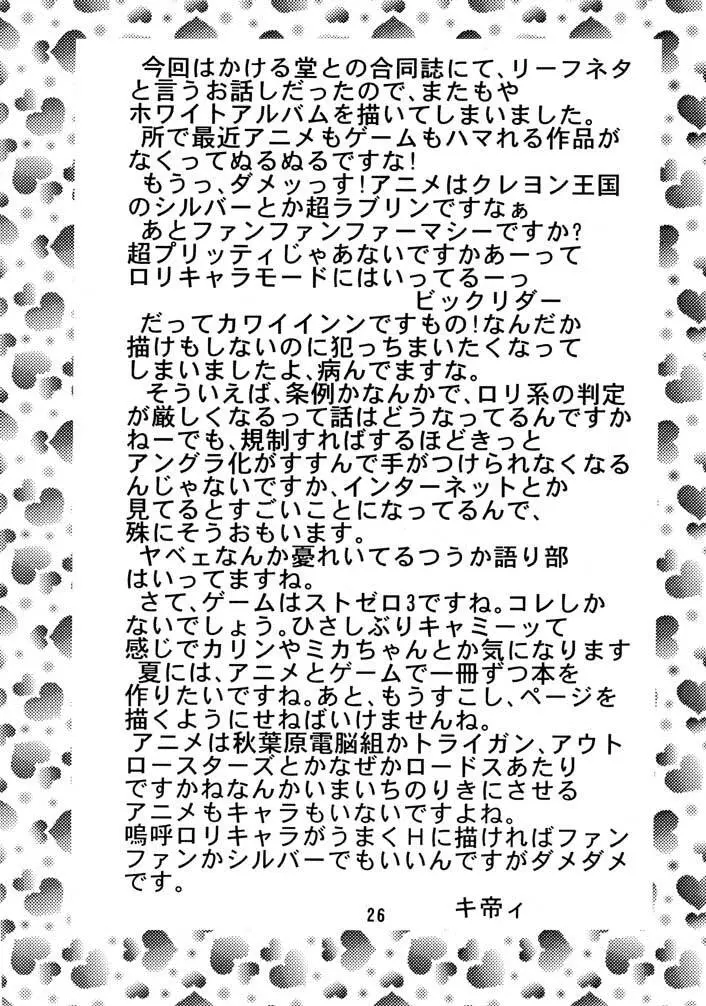 今回はかける堂との合同誌にて、リーフネタ
と言うお話しだったので、またもや
ホワイトアルバムを描いてしまいました。
所で最近アニメもゲームもハマれる作品が
なくってぬるぬるですな!
もうっ、ダメッっす!アニメはクレヨン王国
のシルバーとか超ラブリンですなぁ
あとファンファンファーマシーですか?
超プリッティじゃあないですかあーって
ロリキャラモードにはいってるーっ
ビックリダー
だってカワイイインンですもの!なんだか
描けもしないのに犯っちまいたくなって
しまいましたよ、病んでますな。
そういえば、条例かなんかで、ロリ系の判定
が厳しくなるって話はどうなってるんですか
ねーでも、規制すればするほどきっと
アングラ化がすすんで手がつけられなくなる
んじゃないですか、インターネットとか
見てるとすごいことになってるんで、
殊にそうおもいます。
ヤベェなんか憂れいてるつうか語り部
はいってますね。
さて、ゲームはストゼロ3ですね。コレしか
ないでしょう。ひさしぶりキャミーッて
感じでカリンやミカちゃんとか気になります
夏には、アニメとゲームで一冊ずつ本を
作りたいですね。あと、もうすこし、ページを
描くようにせねばいけませんね。
アニメは秋葉原電脳組かトライガン、アウト
ロースターズとかなぜかロードスあたり
ですかねなんかいまいちのりきにさせる
アニメもキャラもいないですよね。
嗚呼ロリキャラがうまくHに描ければファン
ファンかシルバーでもいいんですがダメダメ
です。
キ帝ィ
26